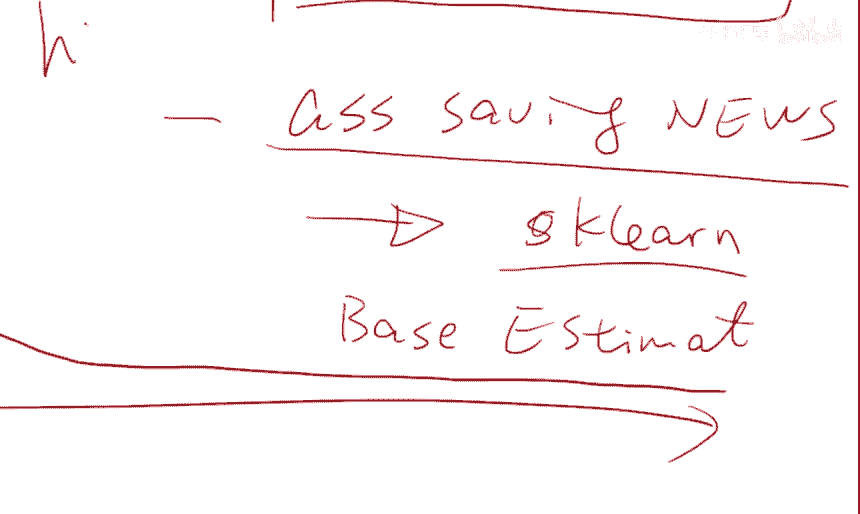 h
- ass saving NEWS
→ sklearn
Base Estimat